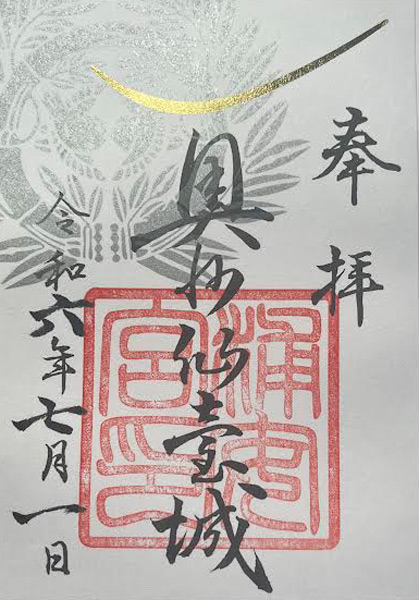 奉拝
奥州仙臺城
令和六年七月一日
浦安
宮印